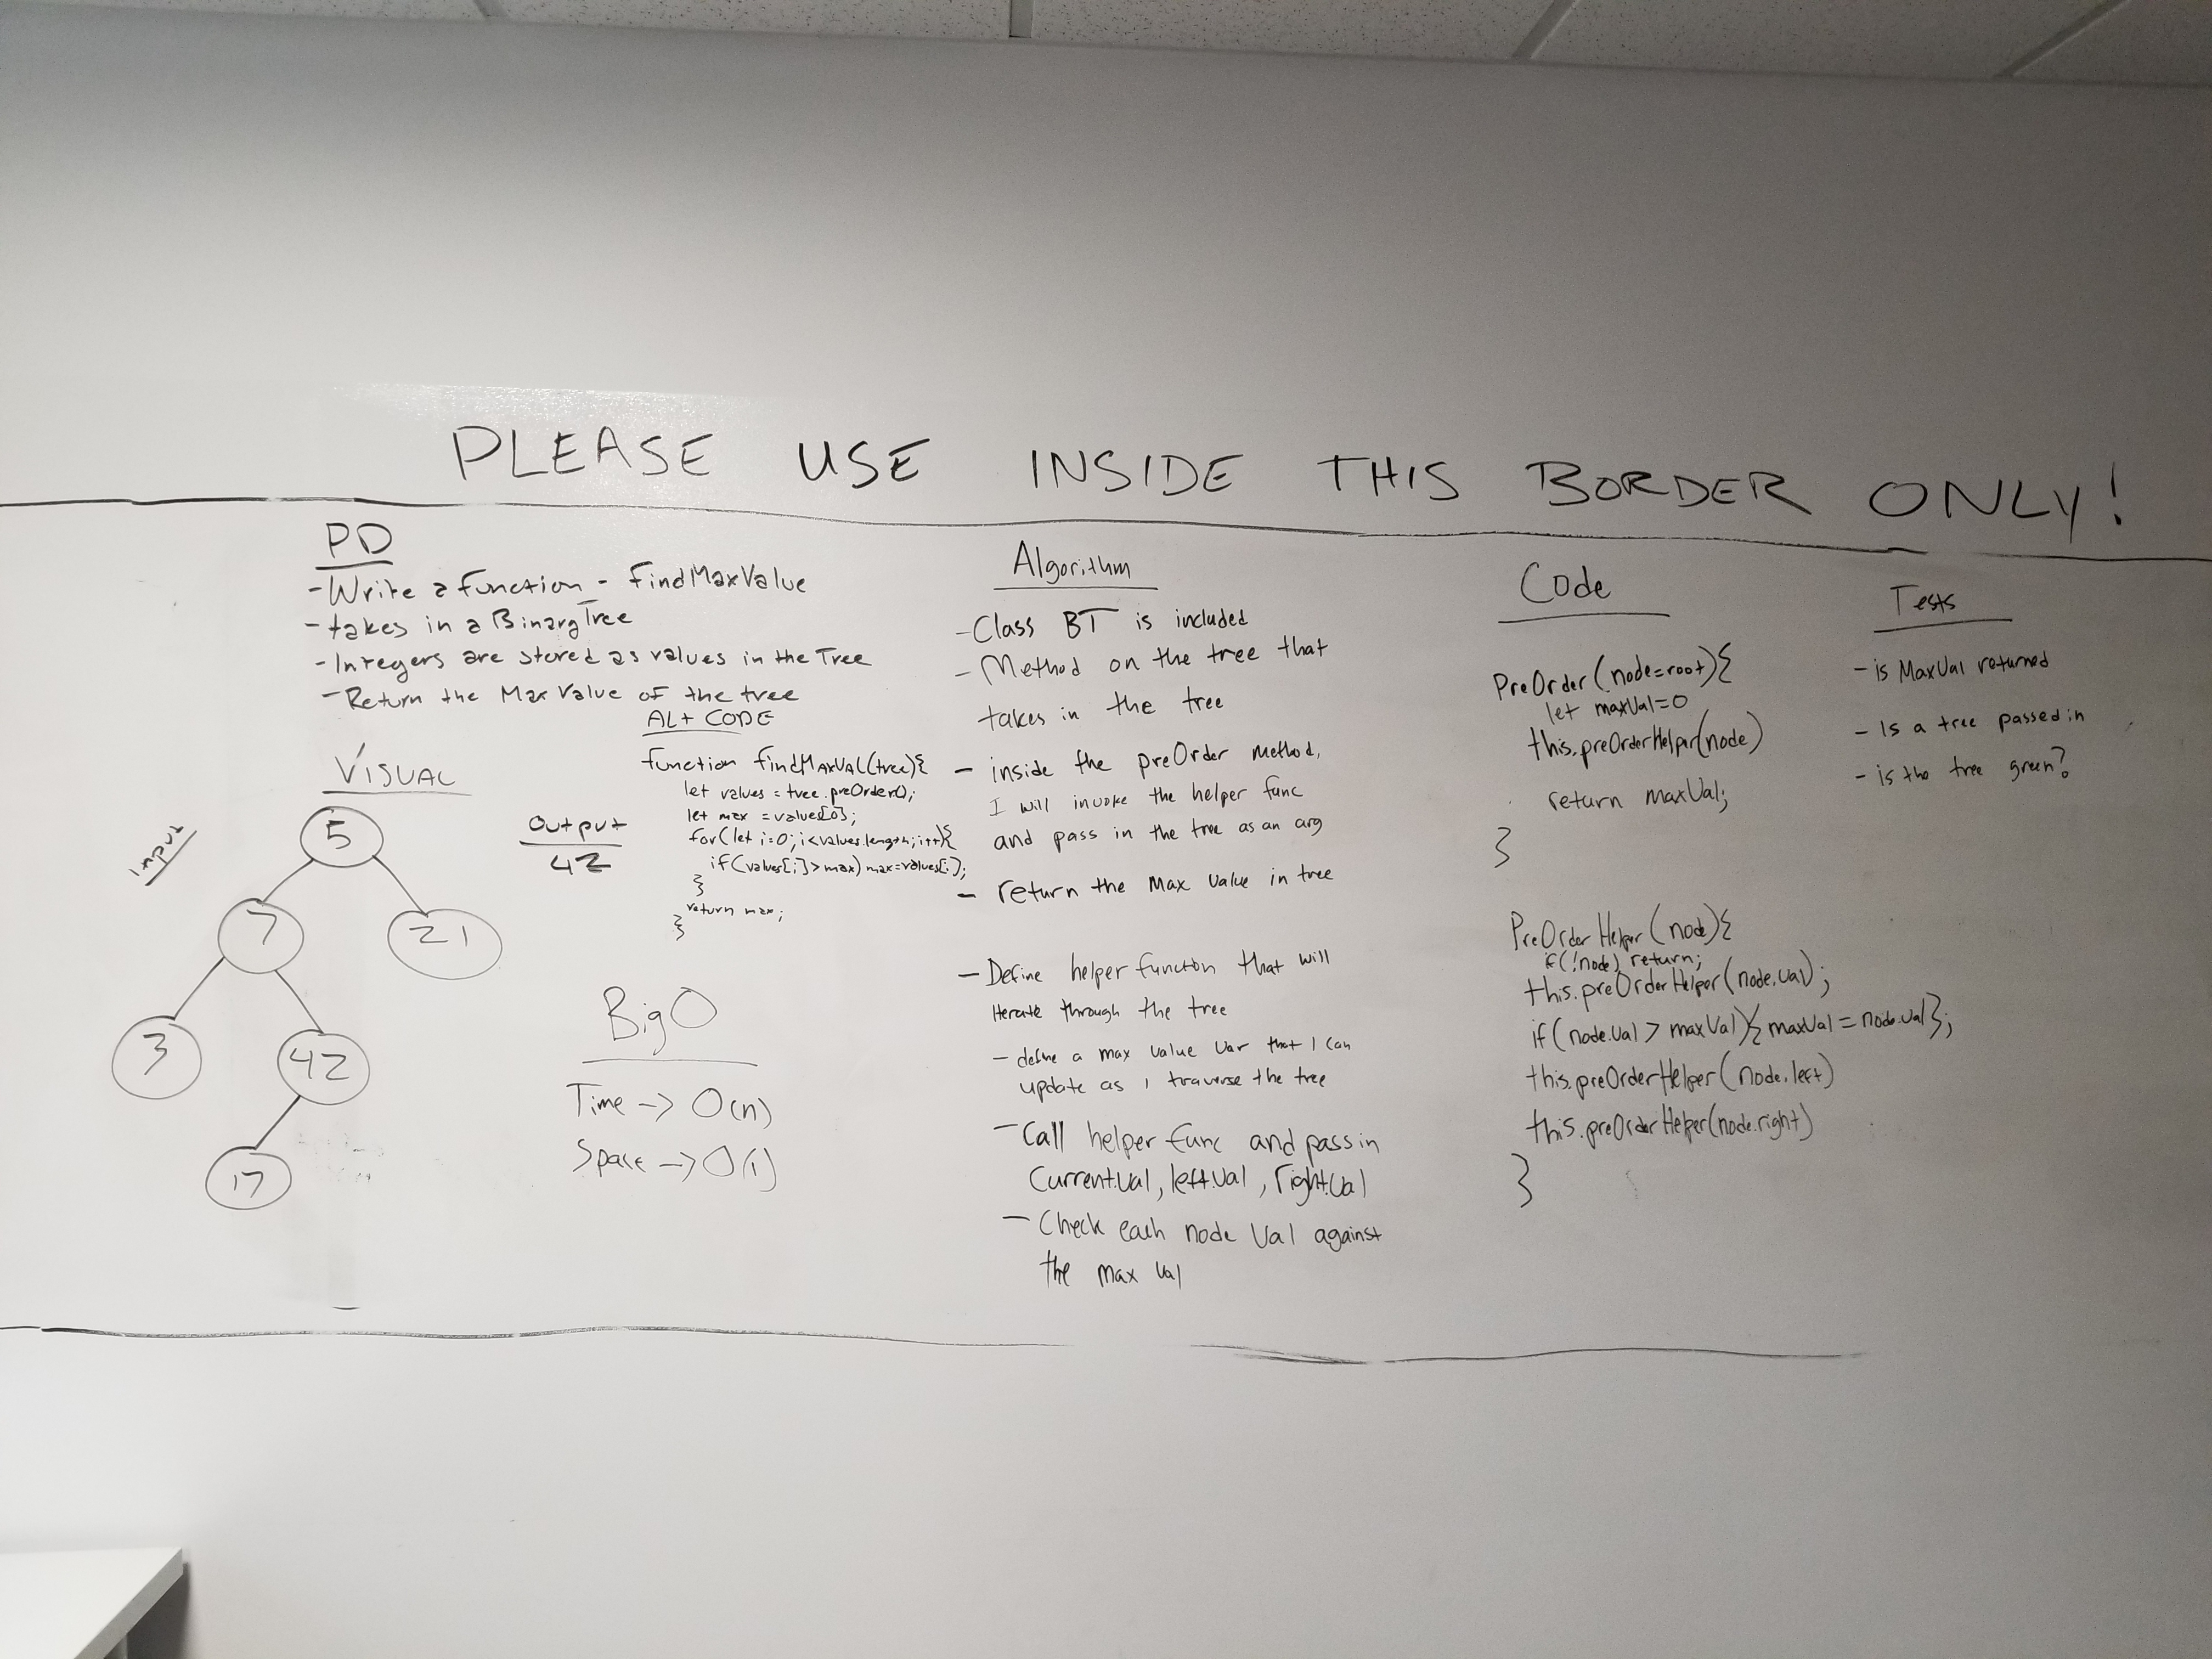 PLEASE USE INSIDE THIS BORDER ONLY!
PD
- Write a function - findMaxValue
- takes in a BinaryTree
- Integers are stored as values in the Tree
- Return the Max Value of the tree
VISUAL
Input
5
7
21
3
42
17
Output
42
ALT CODE
function findMaxVal(tree){
let values = tree.preOrder();
let max = values[0];
for(let i=0; i<values.length; i++){
if(values[i]>max) max=values[i];
}
return max;
}
Big O
Time -> O(n)
Space -> O(1)
Algorithm
- Class BT is included
- Method on the tree that
takes in the tree
- inside the preOrder method,
I will invoke the helper func
and pass in the tree as an arg
- return the Max Value in tree
- Define helper function that will
iterate through the tree
- define a max value var that I can
update as I traverse the tree
- Call helper func and pass in
Current.val, left.val, right.val
- Check each node val against
the max val
Code
PreOrder(node=root){
let maxVal=0
this.preOrderHelper(node)
return maxVal;
}
PreOrderHelper(node){
if(!node) return;
this.preOrderHelper(node.val);
if(node.val > maxVal){ maxVal = node.val};
this.preOrderHelper(node.left)
this.preOrderHelper(node.right)
}
Tests
- is MaxVal returned
- Is a tree passed in
- is the tree green?